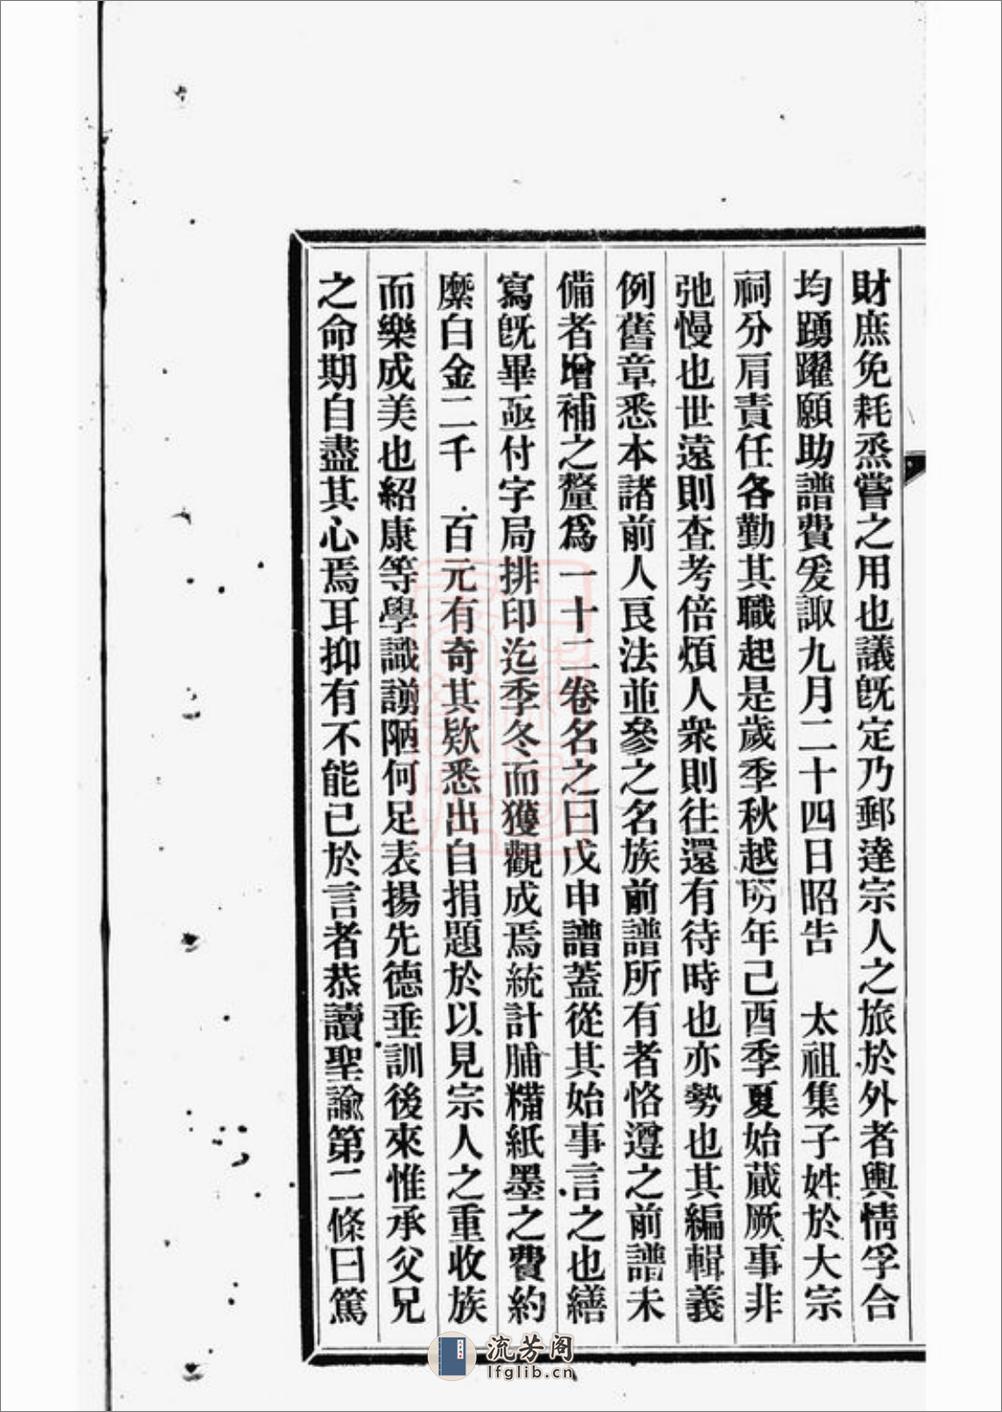 財庶免耗烝嘗之用也議旣定乃郵達宗人之旅於外者輿情孚合
均踴躍願助譜費爰諏九月二十四日昭告　太祖集子姓於大宗
祠分肩責任各勤其職起是歲季秋越明年己酉季夏始蕆厥事非
弛慢也世遠則查考倍煩人衆則往還有待時也亦勢也其編輯義
例舊章悉本諸前人良法並參之名族前譜所有者恪遵之前譜未
備者增補之釐爲一十二卷名之曰戊申譜蓋從其始事言之也繕
寫旣畢亟付字局排印迄季冬而獲觀成焉統計脯糒紙墨之費約
縻白金二千百元有奇其欵悉出自捐題於以見宗人之重收族
而樂成美也紹康等學識謭陋何足表揚先德垂訓後來惟承父兄
之命期自盡其心焉耳抑有不能已於言者恭讀聖諭第二條曰篤
流芳阁
lfglib.cn